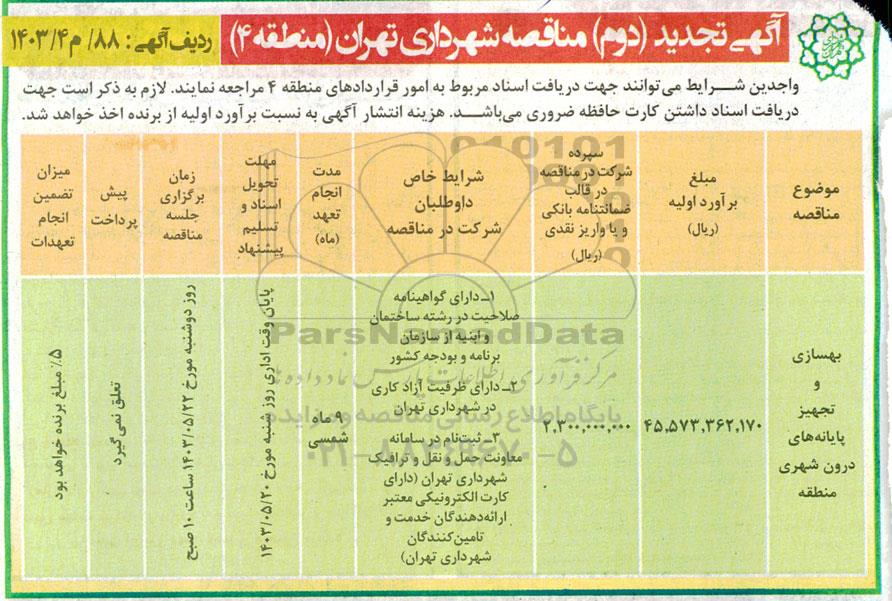 آگهی تجدید (دوم) مناقصه شهرداری تهران (منطقه ۴)
ردیف آگهی: ۸۸/ م۱۴۰۳/۴
واجدین شرایط می‌توانند جهت دریافت اسناد مربوط به امور قراردادهای منطقه ۴ مراجعه نمایند. لازم به ذکر است جهت
دریافت اسناد داشتن کارت حافظه ضروری می‌باشد. هزینه انتشار آگهی به نسبت برآورد اولیه از برنده اخذ خواهد شد.
موضوع
مناقصه
مبلغ
برآورد اولیه
(ریال)
سپرده
شرکت در مناقصه
در قالب
ضمانتنامه بانکی
و یا واریز نقدی
(ریال)
شرایط خاص
داوطلبان
شرکت در مناقصه
مدت
انجام
تعهد
(ماه)
مهلت
تحویل
اسناد و
تسلیم
پیشنهاد
زمان
برگزاری
جلسه
مناقصه
پیش
پرداخت
میزان
تضمین
انجام
تعهدات
بهسازی
و
تجهیز
پایانه‌های
درون شهری
منطقه
۴۵,۵۷۳,۳۶۲,۱۷۰
۲,۳۰۰,۰۰۰,۰۰۰
۱ـ دارای گواهینامه
صلاحیت در رشته ساختمان
و ابنیه از سازمان
برنامه و بودجه کشور
۲ـ دارای ظرفیت آزاد کاری
در شهرداری تهران
۳ـ ثبت‌نام در سامانه
معاونت حمل و نقل و ترافیک
شهرداری تهران (دارای
کارت الکترونیکی معتبر
ارائه‌دهندگان خدمت و
تامین‌کنندگان
شهرداری تهران)
۹ ماه
شمسی
پایان وقت اداری روز شنبه مورخ ۱۴۰۳/۰۵/۲۰
روز دوشنبه مورخ ۱۴۰۳/۰۵/۲۲ ساعت ۱۰ صبح
تعلق نمی‌گیرد
۵٪ مبلغ برنده خواهد بود
ParsNamadData
مرکز فرآوری اطلاعات پارس نماد داده‌ها
پایگاه اطلاع رسانی مناقصه و مزایده
۰۲۱-۸۸۳۴۹۶۷۰-۵